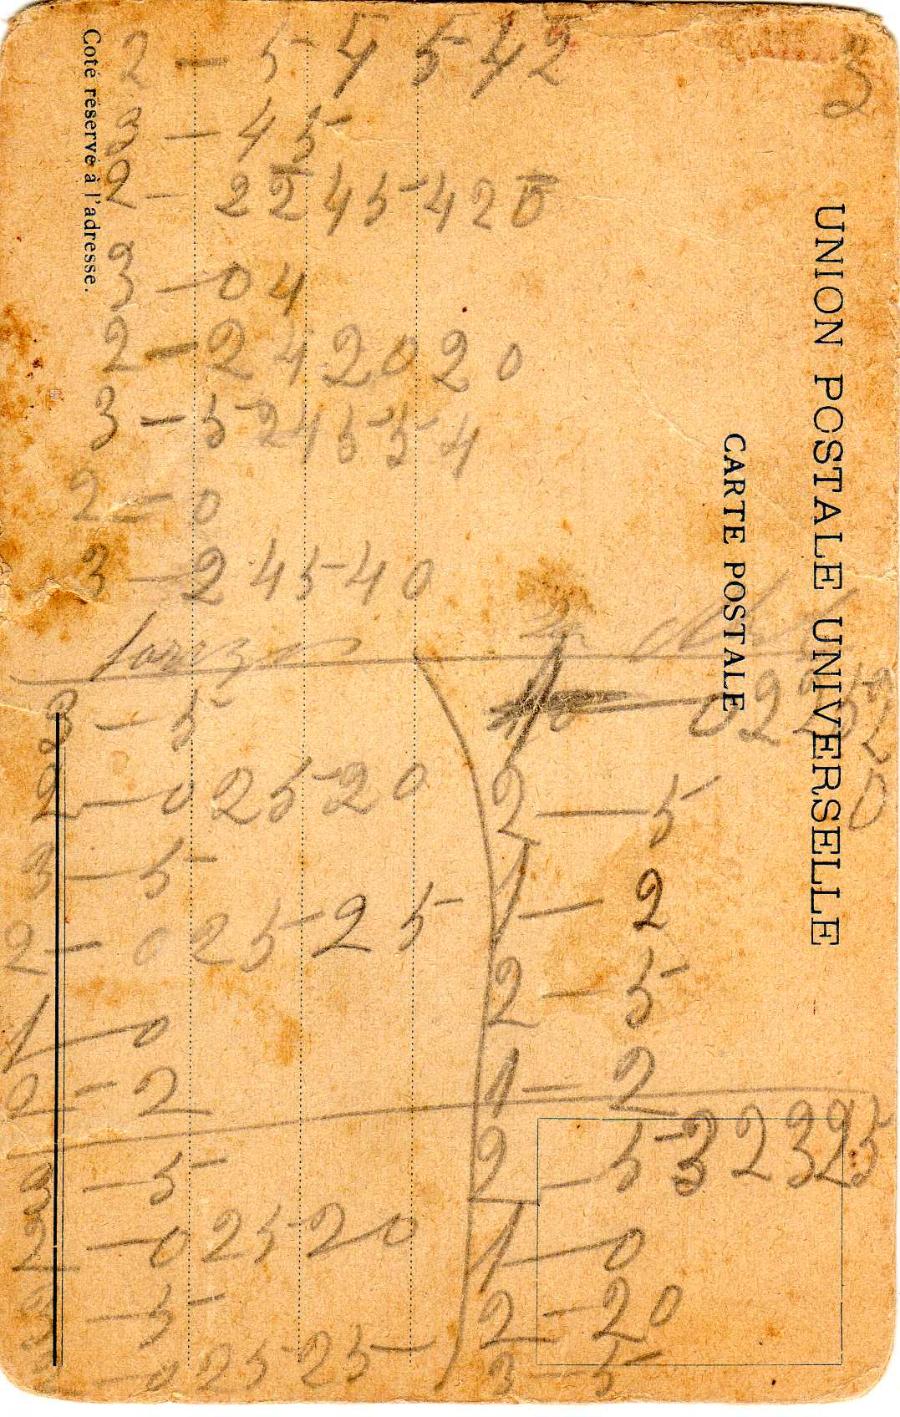 UNION POSTALE UNIVERSELLE
CARTE POSTALE
Coté réservé à l'adresse.
2 - 5 4 5 4 2
3 - 4 5
2 - 2 2 4 5 4 2 0
3 - 0 4
2 - 2 4 2 0 2 0
3 - 5 2 4 5 5 4
2 = 0
3 - 2 4 5 4 0
3 - 5
2 - 0 2 5 2 0
3 - 5
2 - 0 2 5 2 5
1 - 0
2 - 2
3 - 5
2 - 0 2 5 2 0
3 - 5
2 - 0 2 5 2 5
2 - 5
1 - 2
2 - 5
1 - 2
2 - 5 3 2 3 2 5
1 - 0
2 - 2 0
3 - 5